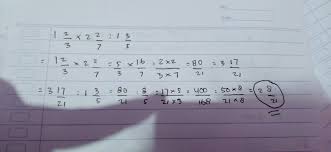 1 2/3 × 2 2/7 : 1 3/5
= 1 2/3 × 2 2/7 = 5/3 × 16/7 = 80/21 = 3 17/21
= 3 17/21 : 1 3/5 = 80/21 : 8/5 = = 400/168 = 50×8/21×8 = 2 8/21